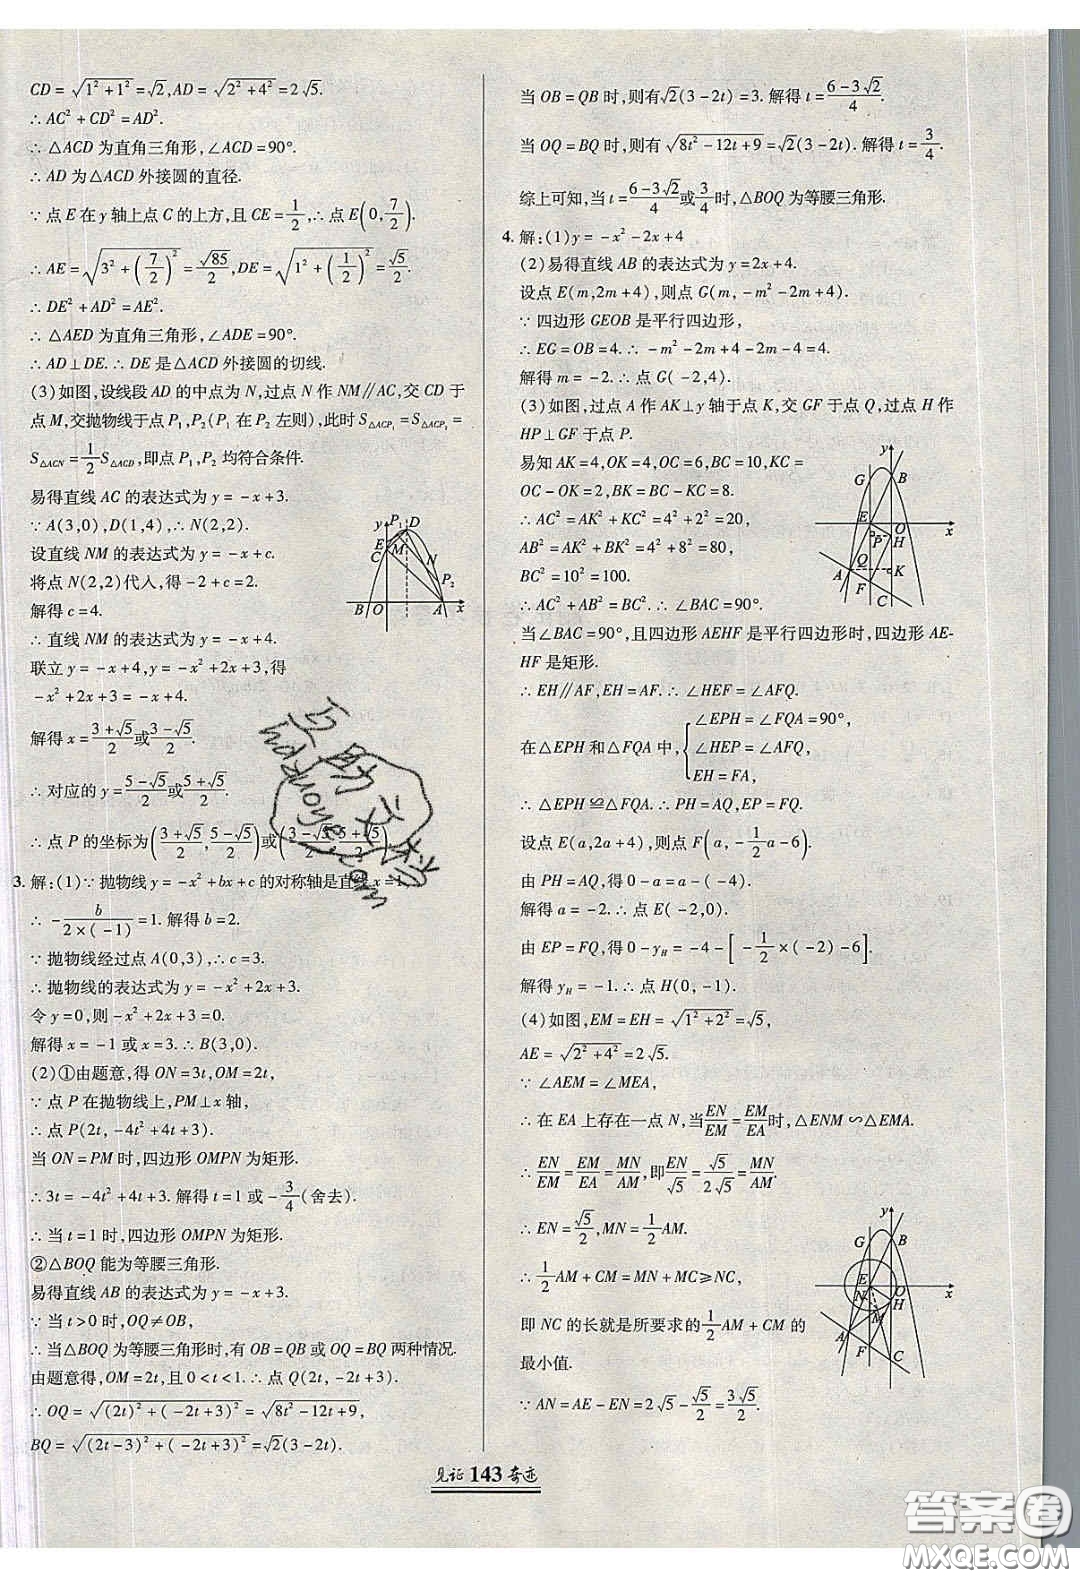 CD=√(1²+1²)=√2,AD=√(2²+4²)=2√5.
∴AC²+CD²=AD².
∴△ACD为直角三角形,∠ACD=90°.
∴AD为△ACD外接圆的直径.
∵点E在y轴上点C的上方,且CE=1/2,∴点E(0,7/2).
∴AE=√(3²+(7/2)²)=√85/2,DE=√(1²+(1/2)²)=√5/2.
∴DE²+AD²=AE².
∴△AED为直角三角形,∠ADE=90°.
∴AD⊥DE.∴DE是△ACD外接圆的切线.
(3)如图,设线段AD的中点为N,过点N作NM∥AC,交CD于
点M,交抛物线于点P₁,P₂(P₁在P₂左则),此时S△ACP₁=S△ACP₁=
S△ACN=1/2 S△ACD,即点P₁,P₂均符合条件.
易得直线AC的表达式为y=-x+3.
∵A(3,0),D(1,4),∴N(2,2).
设直线NM的表达式为y=-x+c.
将点N(2,2)代入,得-2+c=2.
解得c=4.
∴直线NM的表达式为y=-x+4.
联立y=-x+4,y=-x²+2x+3,得
-x²+2x+3=-x+4.
解得x=(3+√5)/2或(3-√5)/2.
∴对应的y=(5-√5)/2或(5+√5)/2.
∴点P的坐标为((3+√5)/2,(5-√5)/2)或((3-√5)/2,(5+√5)/2).
y P₁ D E C M N P₂ B O A x
3.解:(1)∵抛物线y=-x²+bx+c的对称轴是直线x=1,
∴-b/(2×(-1))=1.解得b=2.
∵抛物线经过点A(0,3),∴c=3.
∴抛物线的表达式为y=-x²+2x+3.
令y=0,则-x²+2x+3=0.
解得x=-1或x=3.∴B(3,0).
(2)①由题意,得ON=3t,OM=2t,
∵点P在抛物线上,PM⊥x轴,
∴点P(2t,-4t²+4t+3).
当ON=PM时,四边形OMPN为矩形.
∴3t=-4t²+4t+3.解得t=1或-3/4(舍去).
∴当t=1时,四边形OMPN为矩形.
②△BOQ能为等腰三角形.
易得直线AB的表达式为y=-x+3.
∵当t>0时,OQ≠OB,
∴当△BOQ为等腰三角形时,有OB=QB或OQ=BQ两种情况.
由题意得,OM=2t,且0<t<1.∴点Q(2t,-2t+3).
∴OQ=√((2t)²+(-2t+3)²)=√(8t²-12t+9),
BQ=√((2t-3)²+(-2t+3)²)=√2(3-2t).
当OB=QB时,则有√2(3-2t)=3.解得t=(6-3√2)/4.
当OQ=BQ时,则有√(8t²-12t+9)=√2(3-2t).解得t=3/4.
综上可知,当t=(6-3√2)/4或3/4时,△BOQ为等腰三角形.
4.解:(1)y=-x²-2x+4
(2)易得直线AB的表达式为y=2x+4.
设点E(m,2m+4),则点G(m,-m²-2m+4).
∵四边形GEOB是平行四边形,
∴EG=OB=4.∴-m²-2m+4-2m-4=4.
解得m=-2.∴点G(-2,4).
(3)如图,过点A作AK⊥y轴于点K,交GF于点Q,过点H作
HP⊥GF于点P.
易知AK=4,OK=4,OC=6,BC=10,KC=
OC-OK=2,BK=BC-KC=8.
∴AC²=AK²+KC²=4²+2²=20,
AB²=AK²+BK²=4²+8²=80,
BC²=10²=100.
∴AC²+AB²=BC².∴∠BAC=90°.
y G B E O x P H Q A K F C
当∠BAC=90°,且四边形AEHF是平行四边形时,四边形AE-
HF是矩形.
∴EH∥AF,EH=AF.∴∠HEF=∠AFQ.
在△EPH和△FQA中,{∠EPH=∠FQA=90°,
∠HEP=∠AFQ,
EH=FA,
∴△EPH≌△FQA.∴PH=AQ,EP=FQ.
设点E(a,2a+4),则点F(a,-1/2a-6).
由PH=AQ,得0-a=a-(-4).
解得a=-2.∴点E(-2,0).
由EP=FQ,得0-y_H=-4-[-1/2×(-2)-6].
解得y_H=-1.∴点H(0,-1).
(4)如图,EM=EH=√(1²+2²)=√5,
AE=√(2²+4²)=2√5.
∵∠AEM=∠MEA,
∴在EA上存在一点N,当EN/EM=EM/EA时,△ENM∽△EMA.
∴EN/EM=EM/EA=MN/AM,即EN/√5=√5/2√5=MN/AM.
∴EN=√5/2,MN=1/2AM.
∴1/2AM+CM=MN+MC≥NC,
即NC的长就是所要求的1/2AM+CM的
最小值.
y G B E O x N H M A F C
∵AN=AE-EN=2√5-√5/2=3√5/2.
见证143奇迹
hazuoye.com
答案圈
MXQE.COM